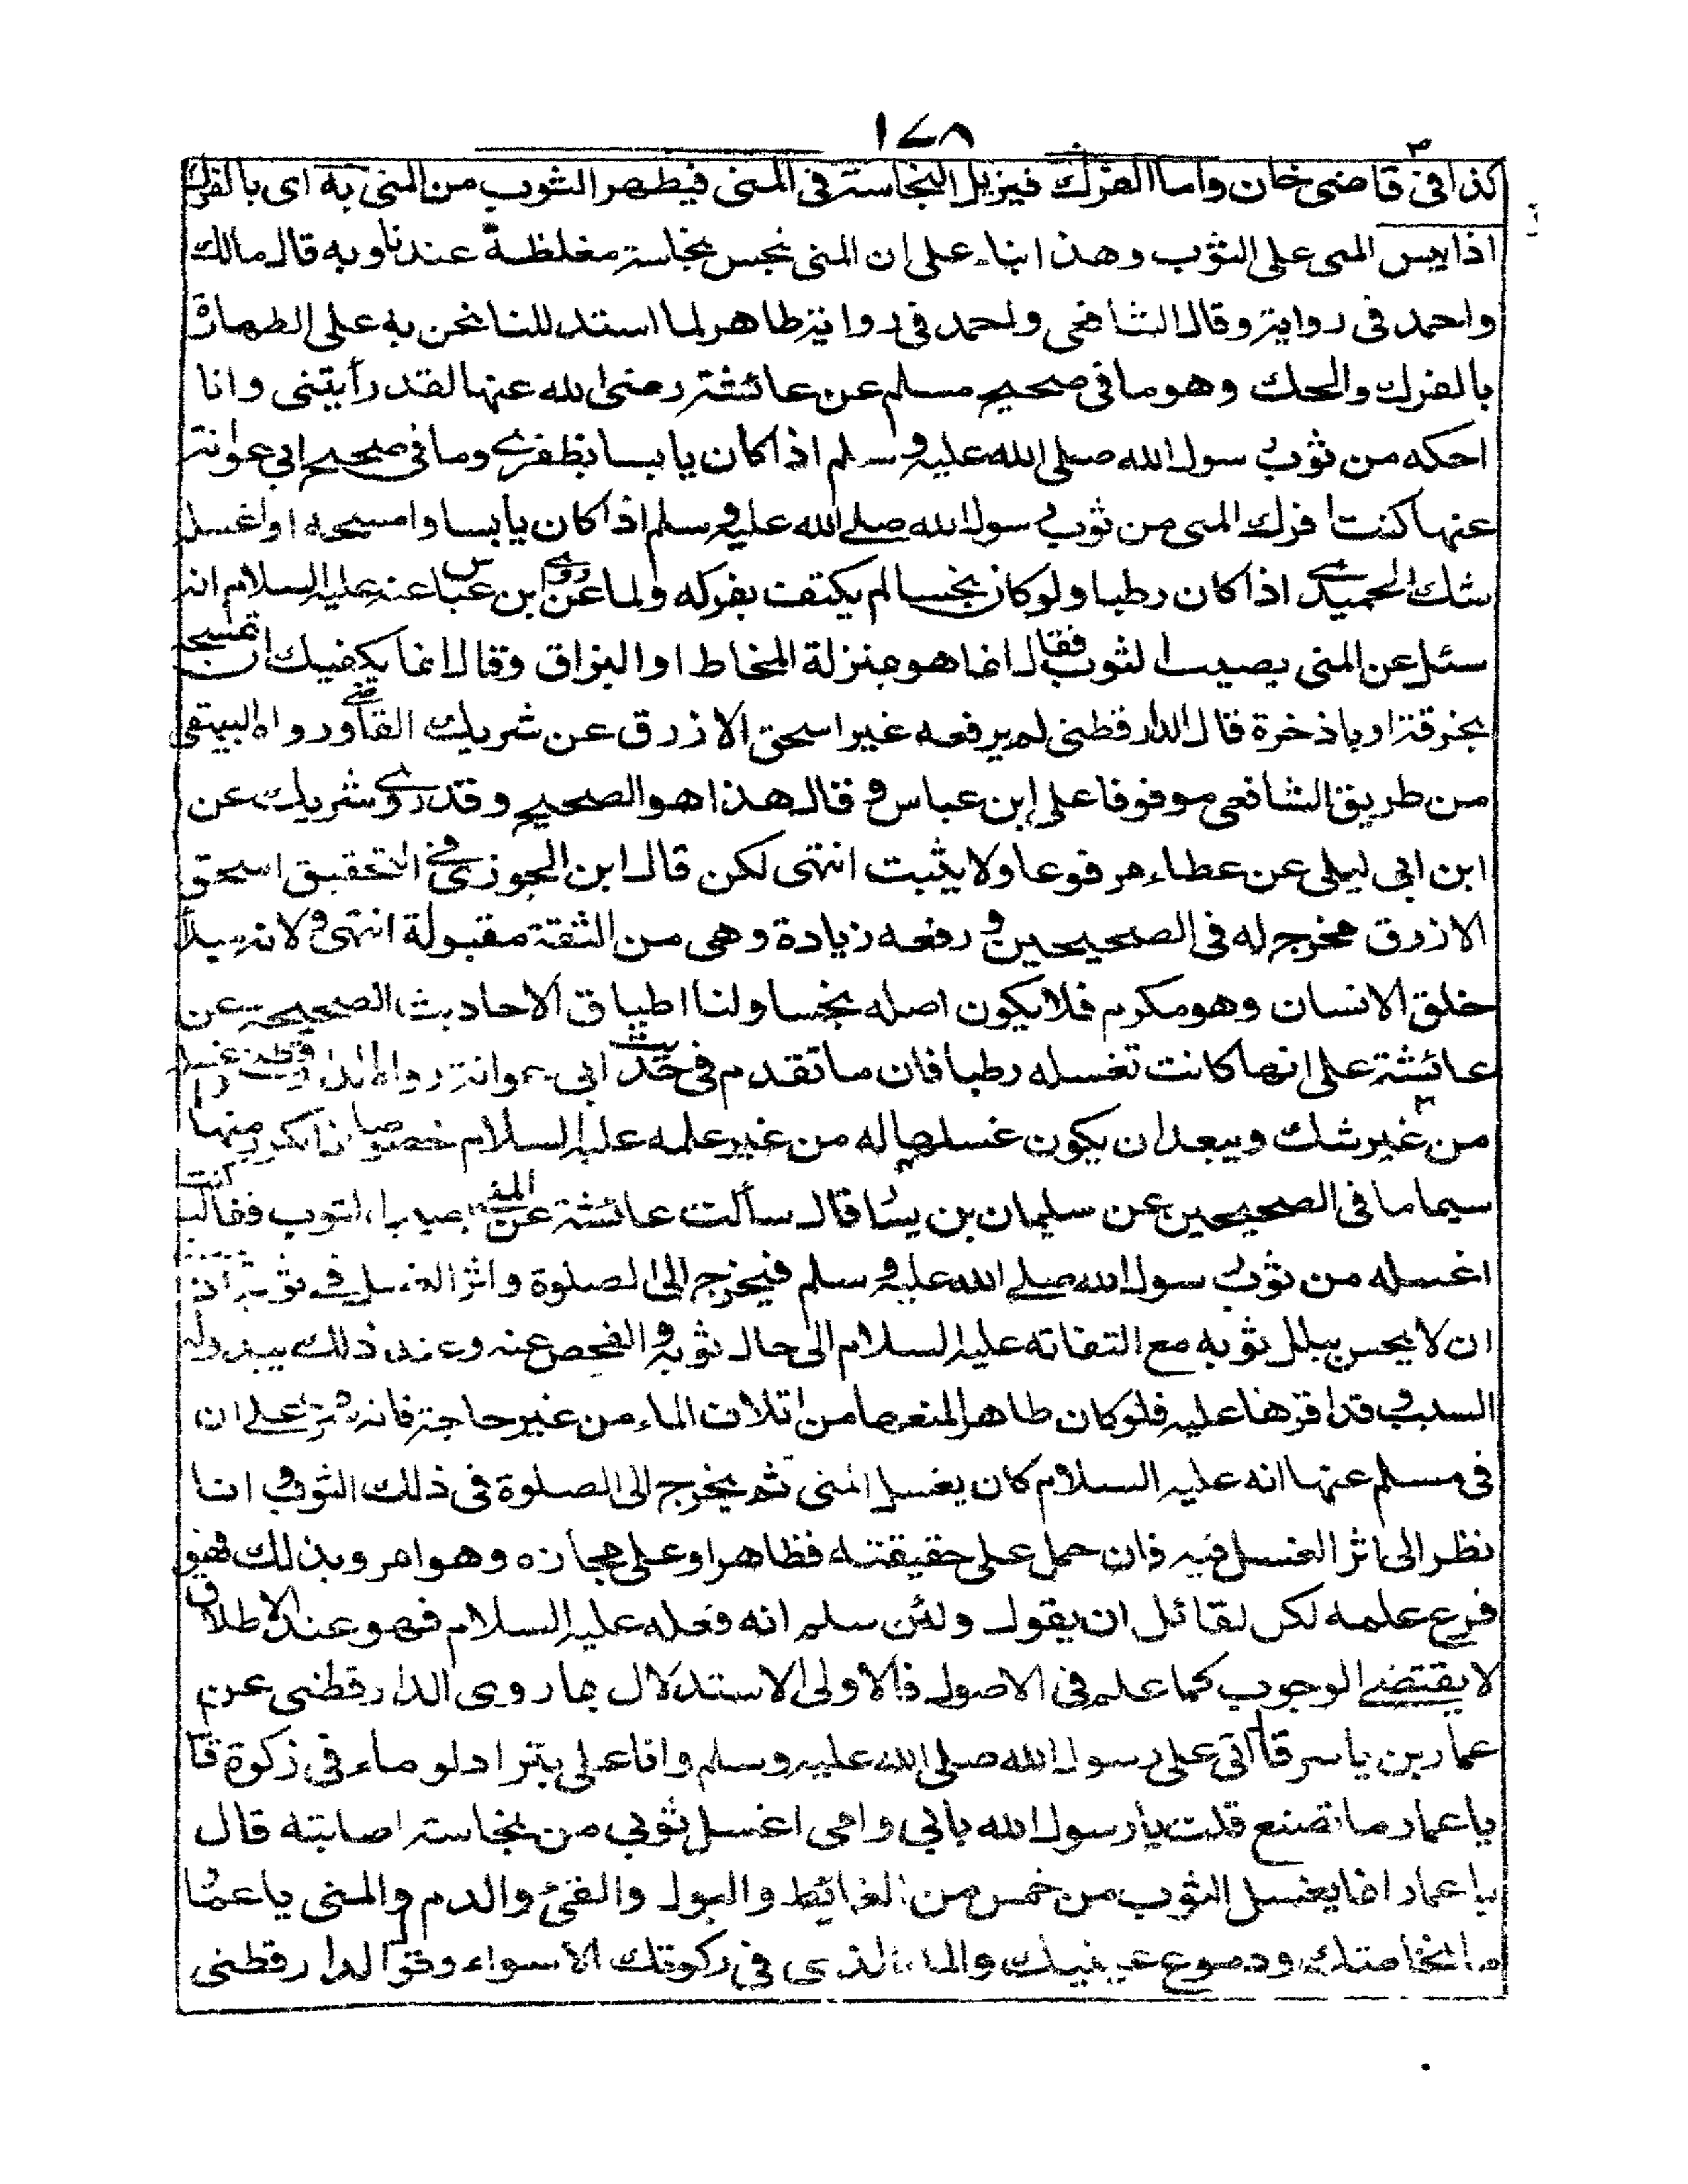 ١٧٨
كذا فى قاضى خان واما الفرك فيزيل النجاسة فى المنى فيطهر الثوب من المنى به اى بالفرك
اذا يبس المنى على الثوب وهذا بناء على ان المنى نجس نجاسة مغلظة عندنا وبه قال مالك
واحمد فى رواية وقال الشافعى واحمد فى رواية طاهر لما استدللنا نحن به على الطهارة
بالفرك والحك وهو ما فى صحيح مسلم عن عائشة رضى الله عنها لقد رأيتنى وانا
احكه من ثوب رسول الله صلى الله عليه وسلم اذا كان يابسا بظفرى وما فى صحيح ابى عوانة
عنها كنت افرك المنى من ثوب رسول الله صلى الله عليه وسلم اذا كان يابسا وامسحه او اغسله
شك الحميدى اذا كان رطبا ولو كان نجسا لم يكتف بفركه ولما روى عن ابن عباس عنه عليه السلام انه
سئل عن المنى يصيب الثوب فقال انما هو بمنزلة المخاط او البزاق وقال انما يكفيك ان تمسحه
بخرقة او باذخرة قال الدارقطنى لم يرفعه غير اسحق الازرق عن شريك القاضى ورواه البيهقى
من طريق الشافعى موقوفا على ابن عباس وقال هذا هو الصحيح وقد روى شريك عن
ابن ابى ليلى عن عطاء مرفوعا ولا يثبت انتهى لكن قال ابن الجوزى فى التحقيق اسحق
الازرق مخرج له فى الصحيحين ورفعه زيادة وهى من الثقة مقبولة انتهى ولانه مبدأ
خلق الانسان وهو مكرم فلا يكون اصله نجسا ولنا اطباق الاحاديث الصحيحة عن
عائشة على انها كانت تغسله رطبا فان ما تقدم فى حديث ابى عوانة رواه الدارقطنى
من غير شك ويبعد ان يكون غسلها له من غير علمه عليه السلام خصوصا اذا تكرر منها
سيما ما فى الصحيحين عن سليمان بن يسار قال سألت عائشة عن المنى يصيب الثوب فقالت كنت
اغسله من ثوب رسول الله صلى الله عليه وسلم فيخرج الى الصلوة واثر الغسل فى ثوبه
ان لا يحس ببلل ثوبه مع التفاته عليه السلام الى حال ثوبه والفحص عنه وعند ذلك يبدو له
السبب وقد اقرها عليه فلو كان طاهرا لمنعها من اتلاف الماء من غير حاجة فانه على ان
فى مسلم عنها انه عليه السلام كان يغسل المنى ثم يخرج الى الصلوة فى ذلك الثوب وانا
نظر الى اثر الغسل فيه فان حمل على حقيقته فظاهر او على مجازه وهو امره بذلك فهو
فرع علمه لكن لقائل ان يقول ولئن سلم انه فعله عليه السلام فهو عند الاطلاق
لا يقتضى الوجوب كما علم فى الاصول فالاولى الاستدلال بما روى الدارقطنى عن
عمار بن ياسر قال اتى على رسول الله صلى الله عليه وسلم وانا على بئر ادلو ماء فى زكوة قال
يا عمار ما تصنع قلت يا رسول الله بابى وامى اغسل ثوبى من نجاسة اصابته قال
يا عمار انما يغسل الثوب من خمس من الغائط والبول والقئ والدم والمنى يا عمار
ما نخامتك ودموع عينيك والماء الذى فى ركوتك الا سواء وقول الدارقطنى